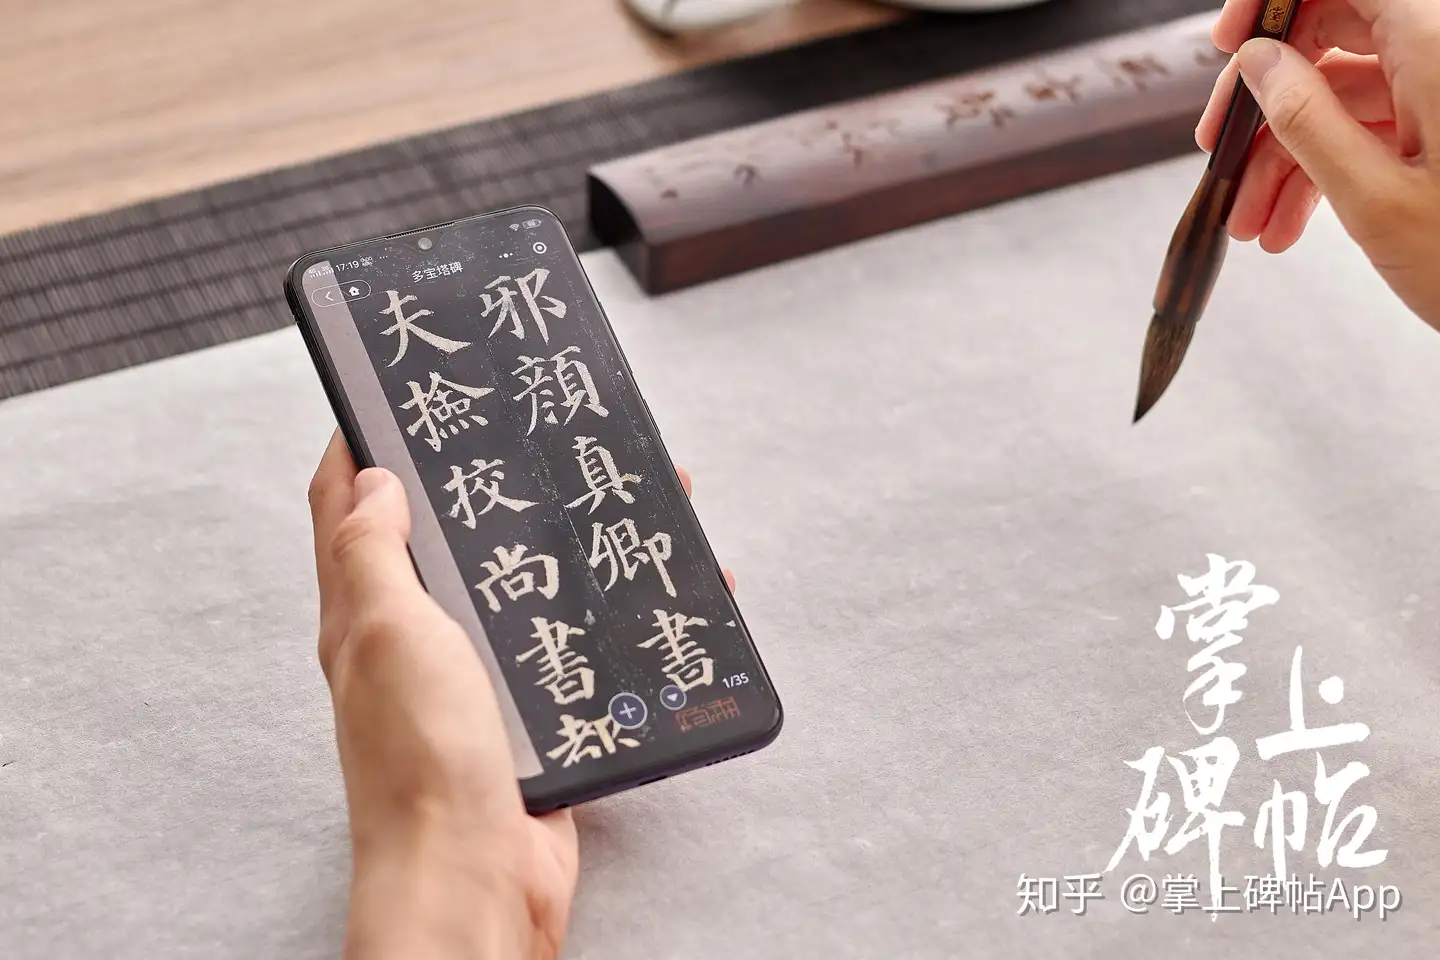 17:19
多宝塔碑
邪顏真卿書
夫撿挍尚書都
1/35
掌上
碑帖
知乎 @掌上碑帖App